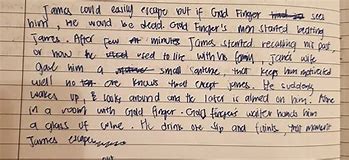 James could easily escape but if Gold Finger see
him, he would be dead. Gold Finger's men started beating
James. After few minutes James started recalling his past,
or how he used to live with his family, James wife
gave him a small that keeps him motivated
well no one knows that except James. He suddenly
wakes up, & looks around and the later is aimed on him. Alone
in a room with Gold Finger. Gold Fingers waiter hands him
a glass of wine. He drinks one sip and thinks, that moment
James escapes